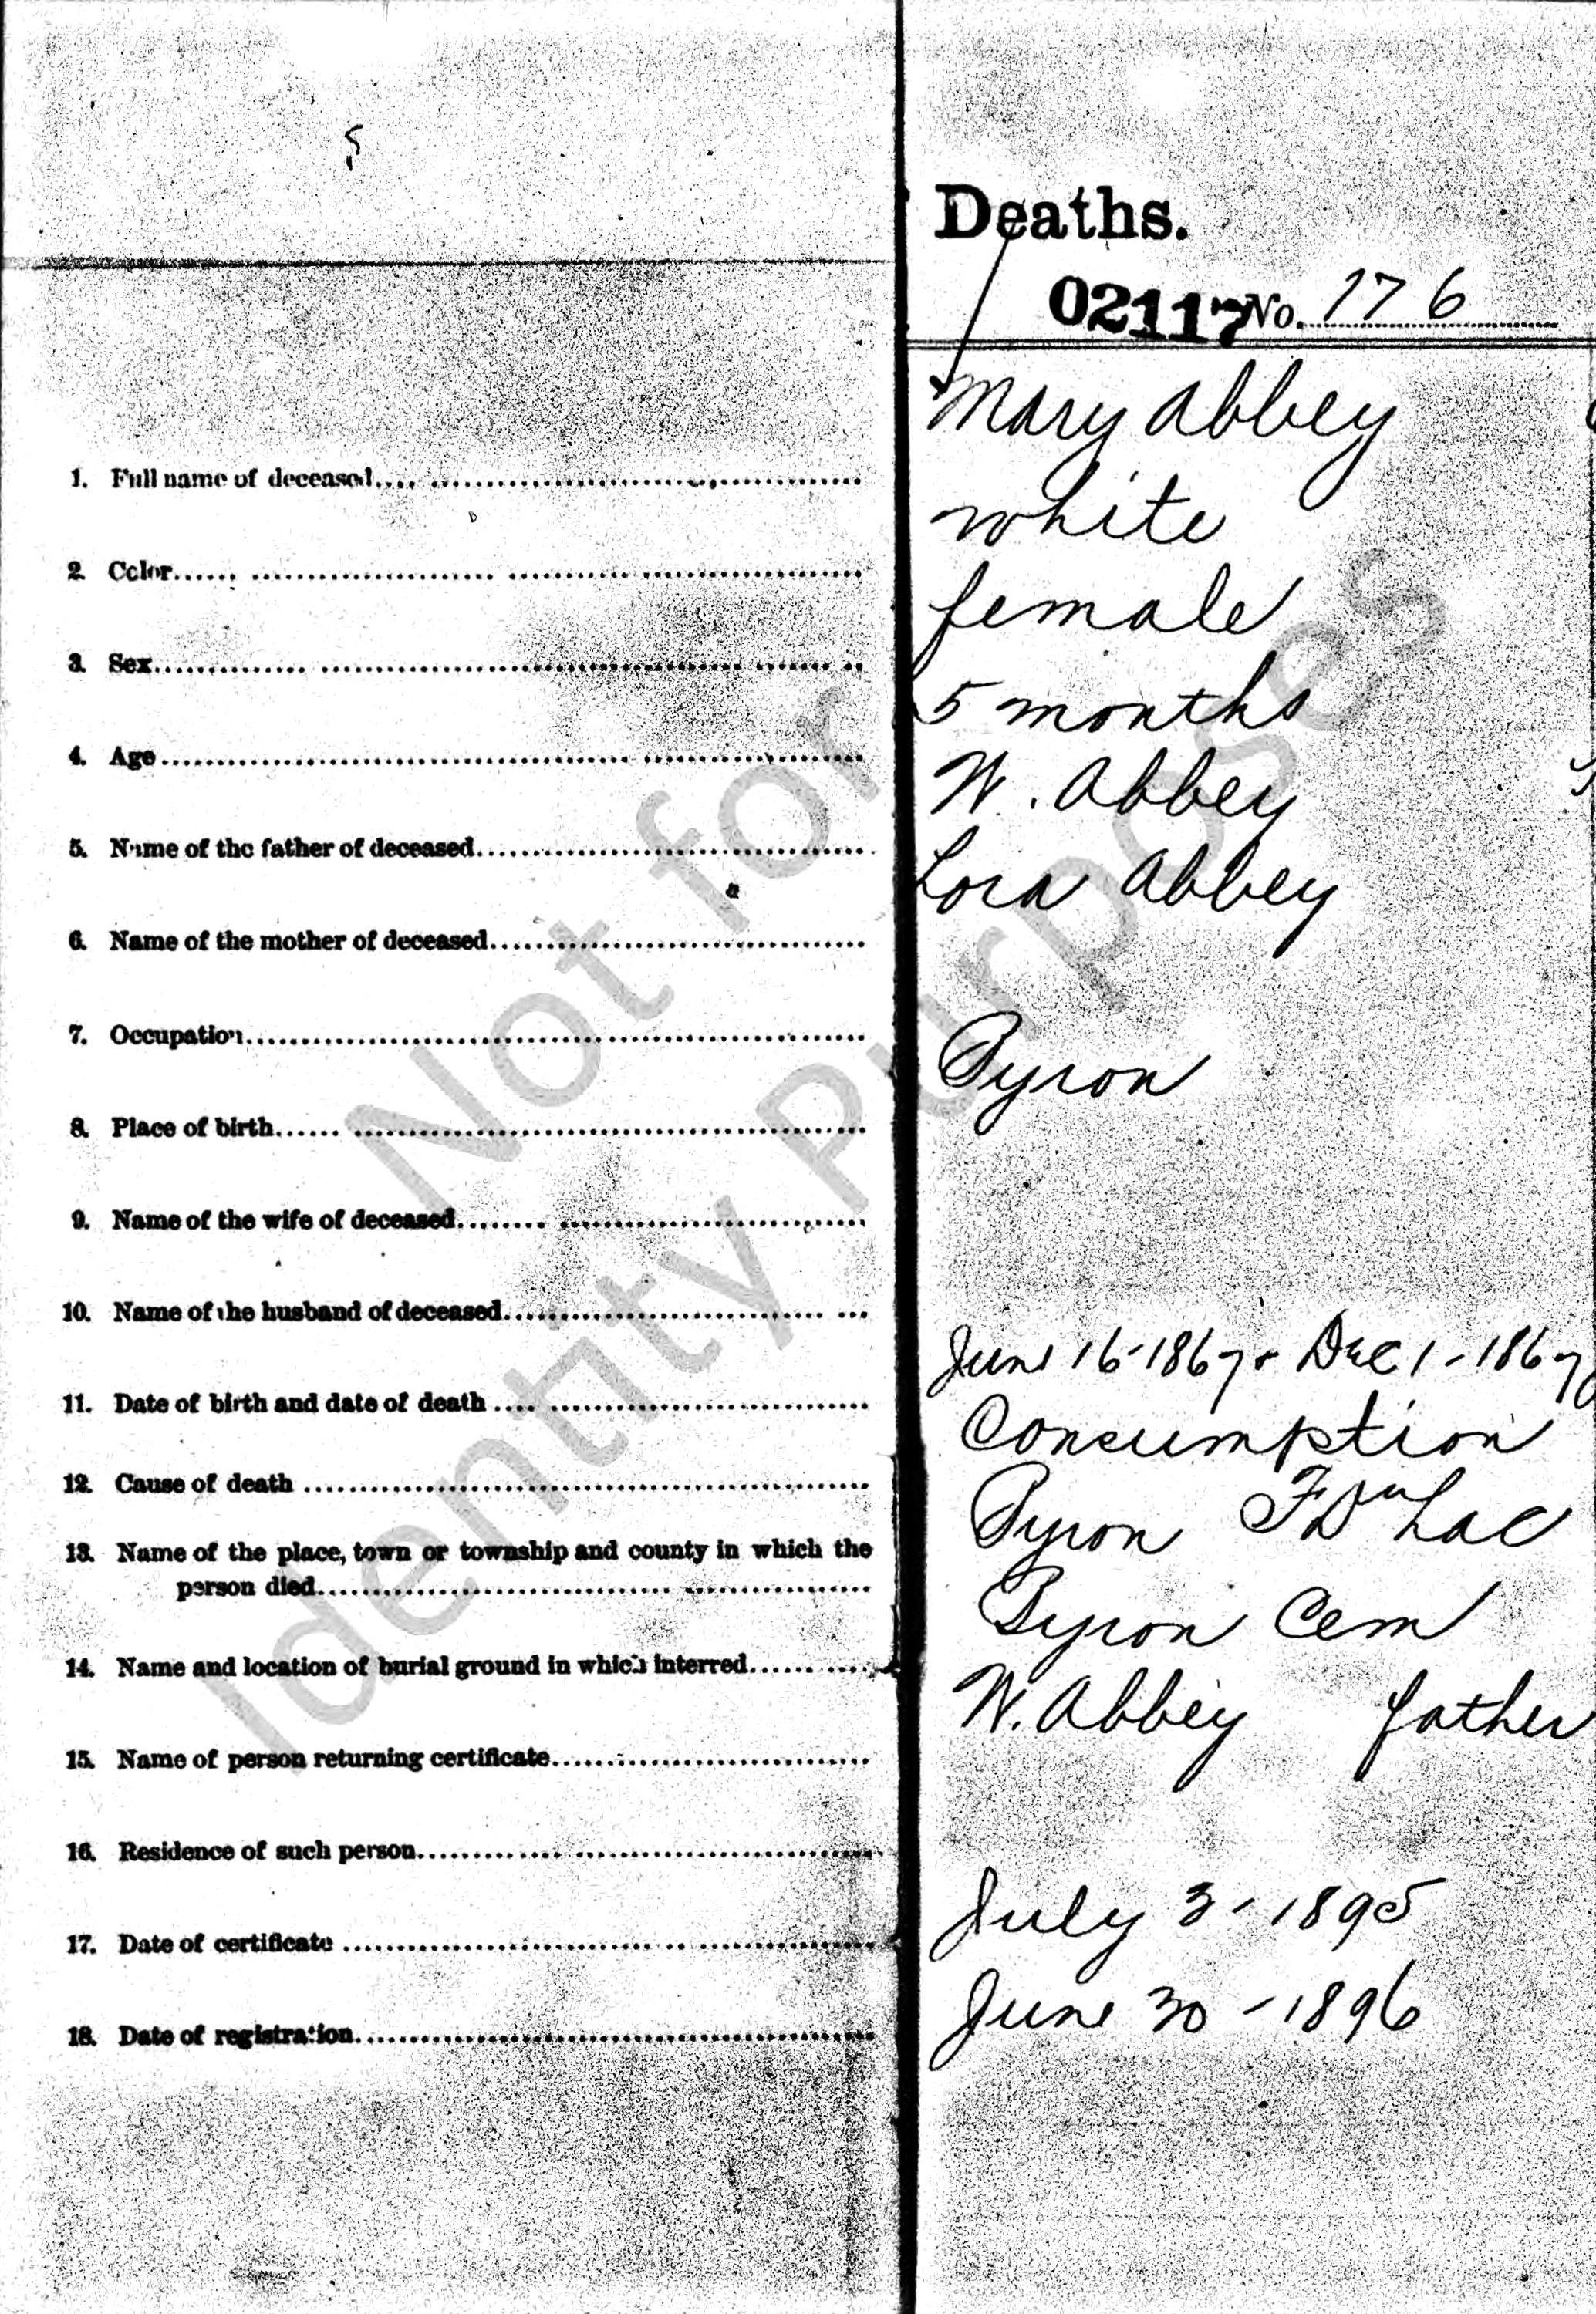 Deaths.
02117 No. 176
Mary Abbey
1. Full name of deceased
white
2. Color
female
3. Sex
5 months
4. Age
W. Abbey
5. Name of the father of deceased
Lora Abbey
6. Name of the mother of deceased
7. Occupation
Byron
8. Place of birth
9. Name of the wife of deceased
10. Name of the husband of deceased
June 16-1867 & Dec 1-1867
11. Date of birth and date of death
Consumption
12. Cause of death
Byron F Du Lac
13. Name of the place, town or township and county in which the
person died
Byron Cem
14. Name and location of burial ground in which interred
W. Abbey father
15. Name of person returning certificate
16. Residence of such person
July 3-1895
17. Date of certificate
June 30-1896
18. Date of registration
Not for
Identity Purposes